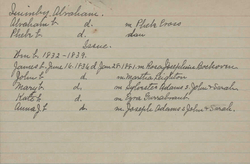 Quimby, Abraham.
Abraham b d. m Phebe Cross
Phebe b d. dau
Issue.
Wm b. 1832-1839.
James b. June 16. 1836 d Jan 28. 1861. m. Rosa Josephine
John b. d. m Martha Leighton
Mary b. d. m Sylvester Adams s John & Sarah.
Kate b. d. m Ezra
Anna J. b d. m Joseph Adams s John & Sarah.